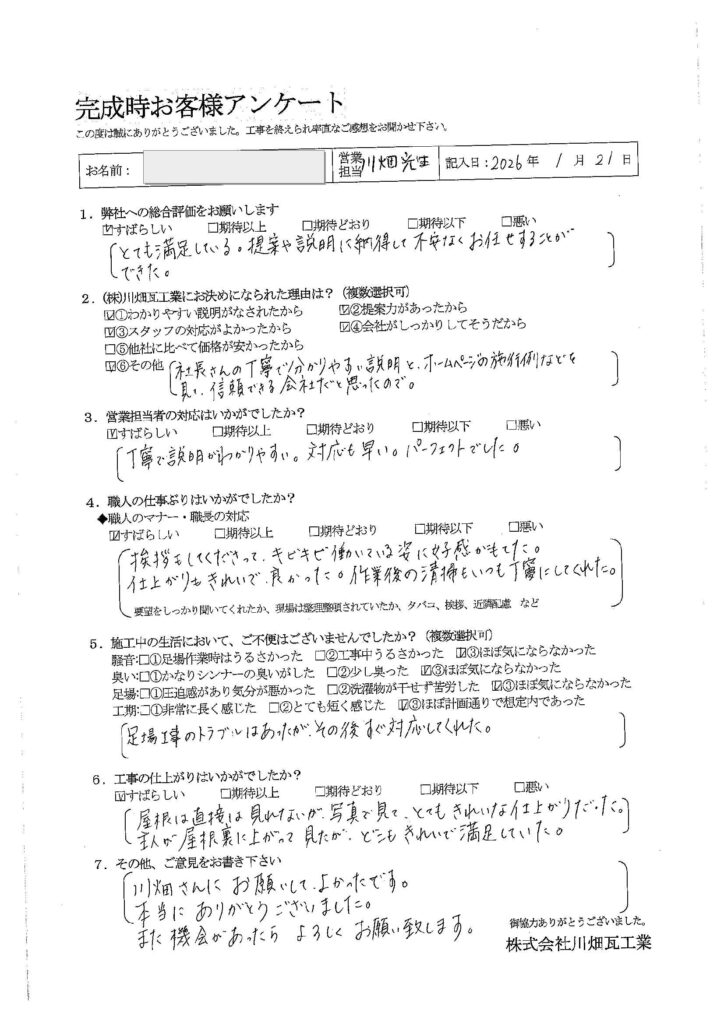 完成時お客様アンケート
この度は誠にありがとうございました。工事を終えられ率直なご感想をお聞かせ下さい。
お名前： 営業担当 川畑 記入日：2026年 1月 21日
1．弊社への総合評価をお願いします
☑すばらしい □期待以上 □期待どおり □期待以下 □悪い
とても満足している。提案や説明に納得して不安なくお任せすることが
できた。
2．(株)川畑瓦工業にお決めになられた理由は？（複数選択可）
☑①わかりやすい説明がなされたから ☑②提案力があったから
☑③スタッフの対応がよかったから ☑④会社がしっかりしてそうだから
□⑤他社に比べて価格が安かったから
☑⑥その他 社長さんの丁寧で分かりやすい説明と、ホームページの施行例などを
見て、信頼できる会社だと思ったので。
3．営業担当者の対応はいかがでしたか？
☑すばらしい □期待以上 □期待どおり □期待以下 □悪い
丁寧で説明がわかりやすい。対応も早い。パーフェクトでした。
4．職人の仕事ぶりはいかがでしたか？
◆職人のマナー・職長の対応
☑すばらしい □期待以上 □期待どおり □期待以下 □悪い
挨拶もしてくださって、キビキビ働いている姿に好感がもてた。
仕上がりもきれいで、良かった。作業後の清掃もいつも丁寧にしてくれた。
要望をしっかり聞いてくれたか、現場は整理整頓されていたか、タバコ、挨拶、近隣配慮 など
5．施工中の生活において、ご不便はございませんでしたか？（複数選択可）
騒音：□①足場作業時はうるさかった □②工事中うるさかった ☑③ほぼ気にならなかった
臭い：□①かなりシンナーの臭いがした □②少し臭った ☑③ほぼ気にならなかった
足場：□①圧迫感があり気分が悪かった □②洗濯物が干せず苦労した ☑③ほぼ気にならなかった
工期：□①非常に長く感じた □②とても短く感じた ☑③ほぼ計画通りで想定内であった
足場工事のトラブルはあったが、その後すぐ対応してくれた。
6．工事の仕上がりはいかがでしたか？
☑すばらしい □期待以上 □期待どおり □期待以下 □悪い
屋根は直接は見れないが、写真で見て、とてもきれいな仕上がりだった。
主人が屋根裏に上がって見たが、どこもきれいで満足していた。
7．その他、ご意見をお書き下さい
川畑さんにお願いして、よかったです。
本当にありがとうございました。
また機会があったら よろしく お願い致します。
御協力ありがとうございました。
株式会社川畑瓦工業